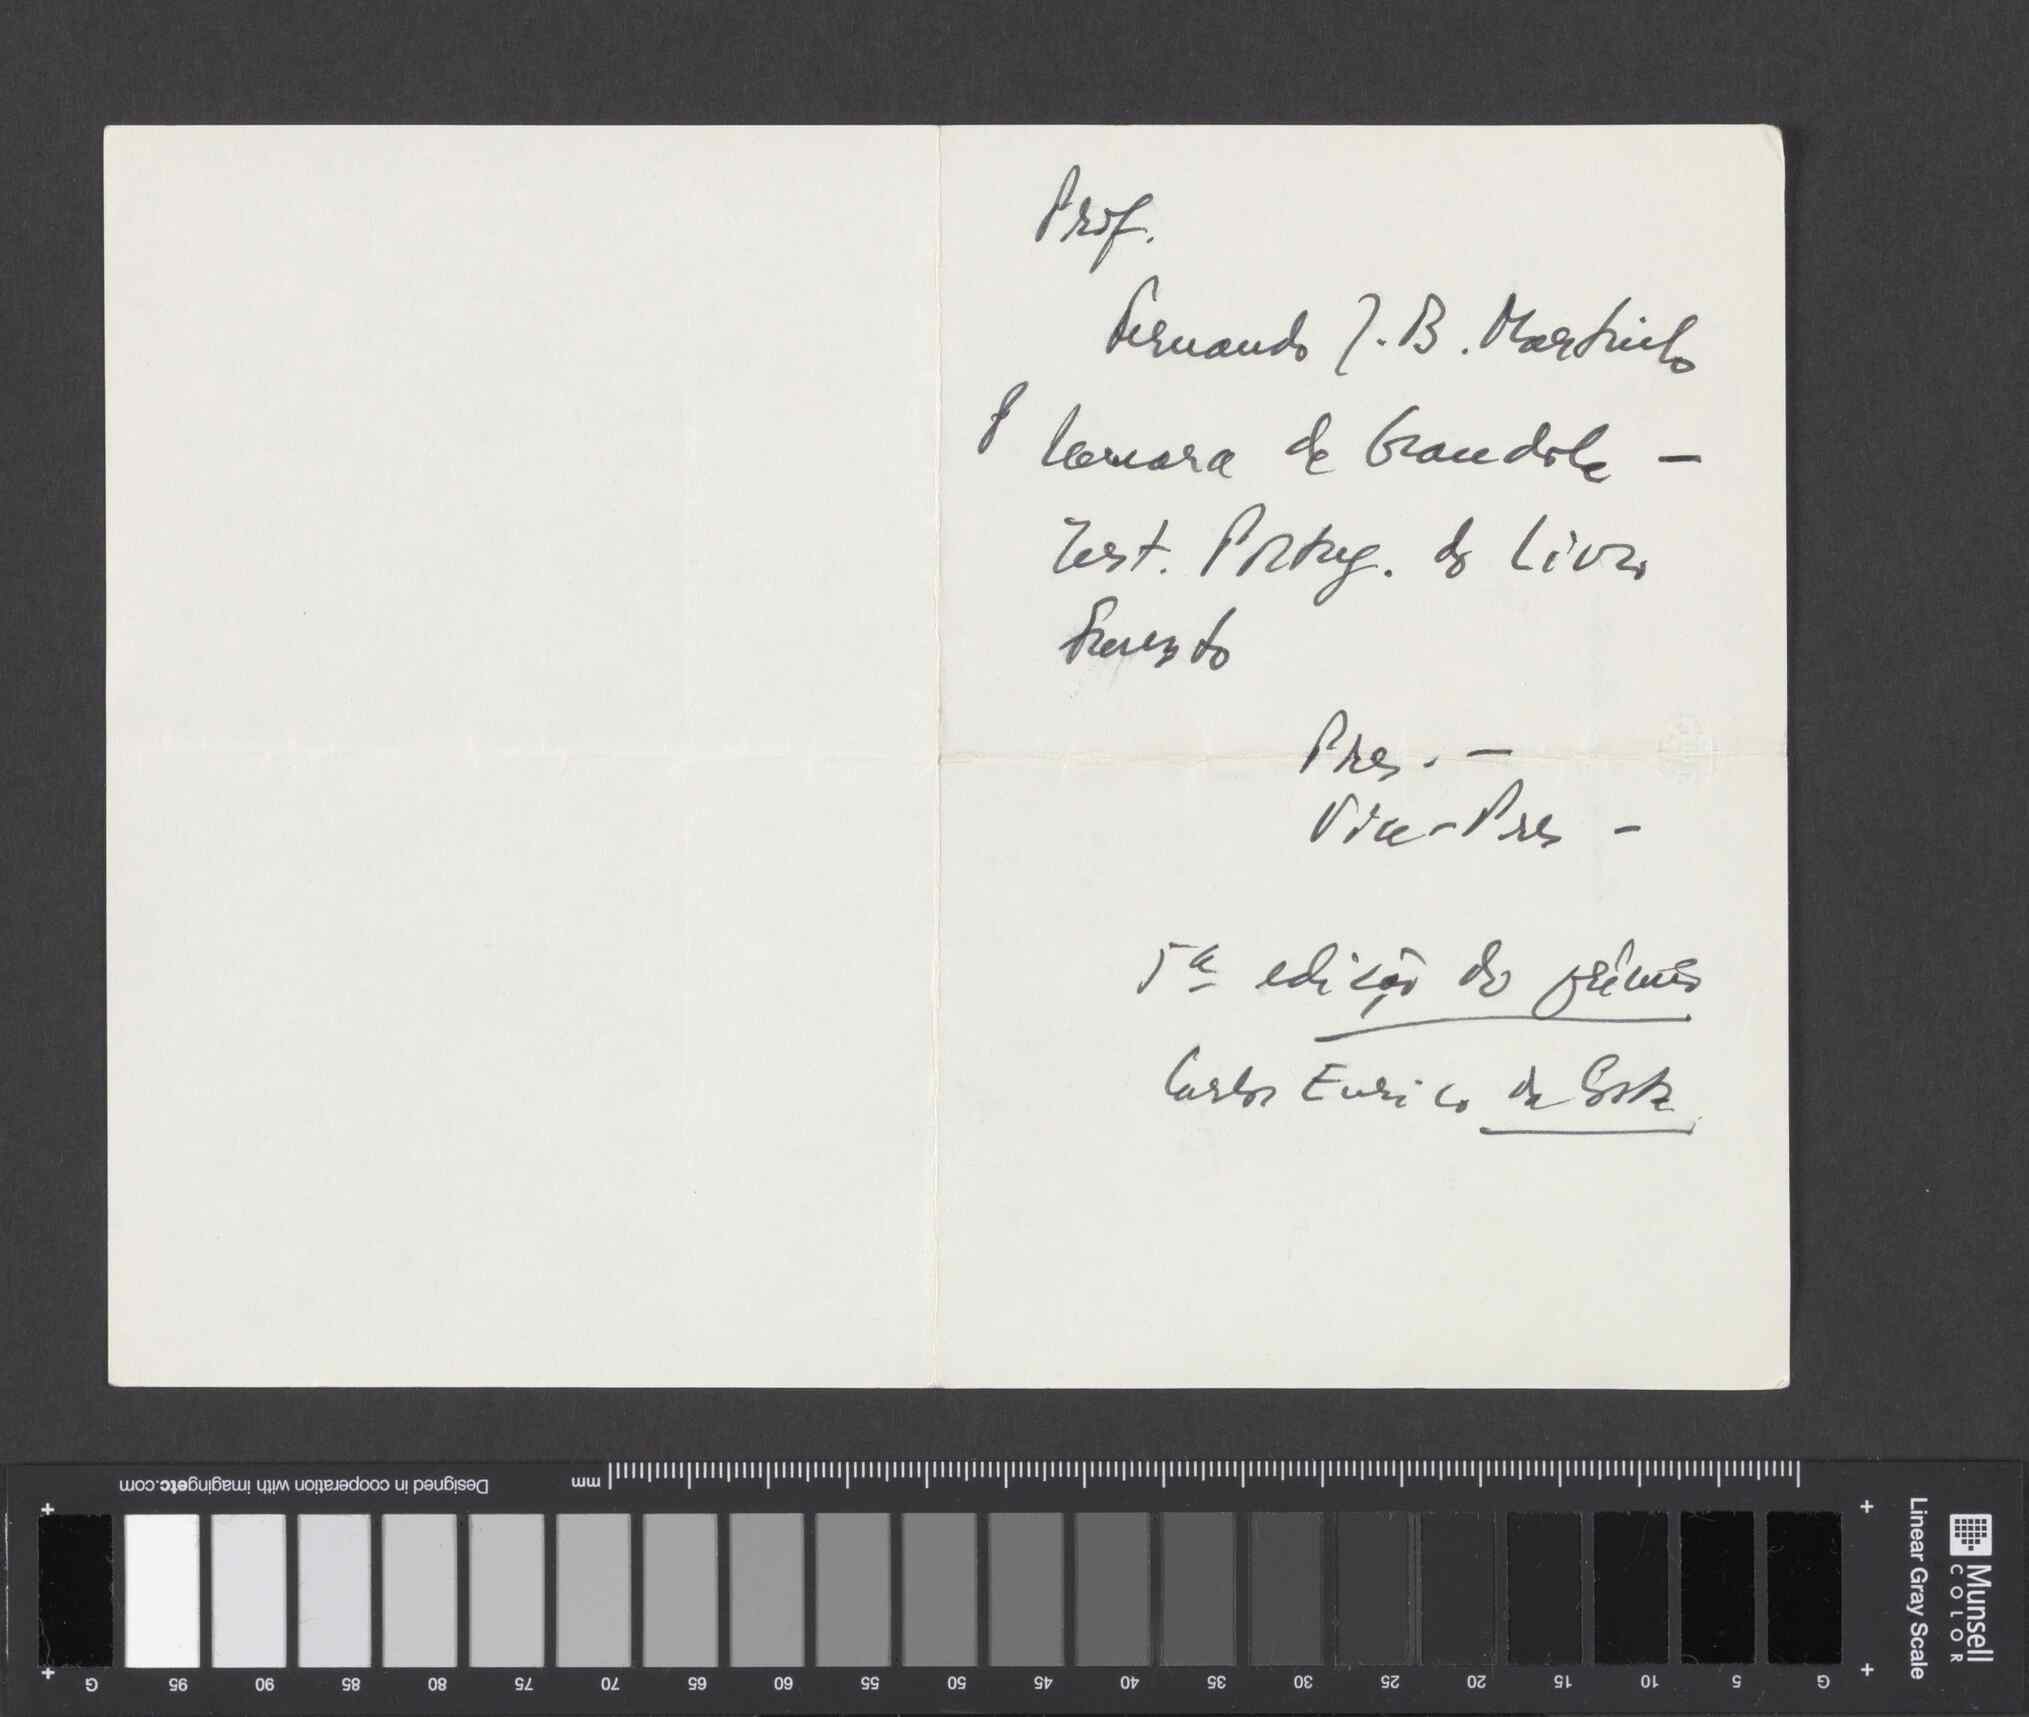 Prof.
Fernando J. B. Martinho
Camara de Grandola –
Inst. Portug. do Livro
Pres. –
Vice-Pres –
5ª edição do prémio
Carlos Eurico da Costa
Designed in cooperation with imagingetc.com
mm
G 95 90 85 80 75 70 65 60 55 50 45 40 35 30 25 20 15 10 5 G
Linear Gray Scale
Munsell
COLOR